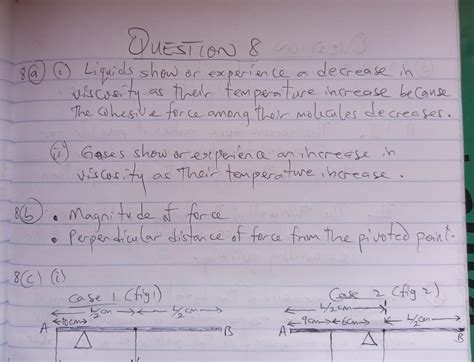 QUESTION 8
8(a) (i) Liquids show or experience a decrease in
viscosity as their temperature increase because
the cohesive force among their molecules decreases.
(ii) Gases show or experience an increase in
viscosity as their temperature increase.
8(b) • Magnitude of force
• Perpendicular distance of force from the pivoted point.
8(c) (i)
Case 1 (fig 1) Case 2 (fig 2)
L/2 cm L/2 cm L/2 cm L/2 cm
10cm 9cm 6cm
A B A B